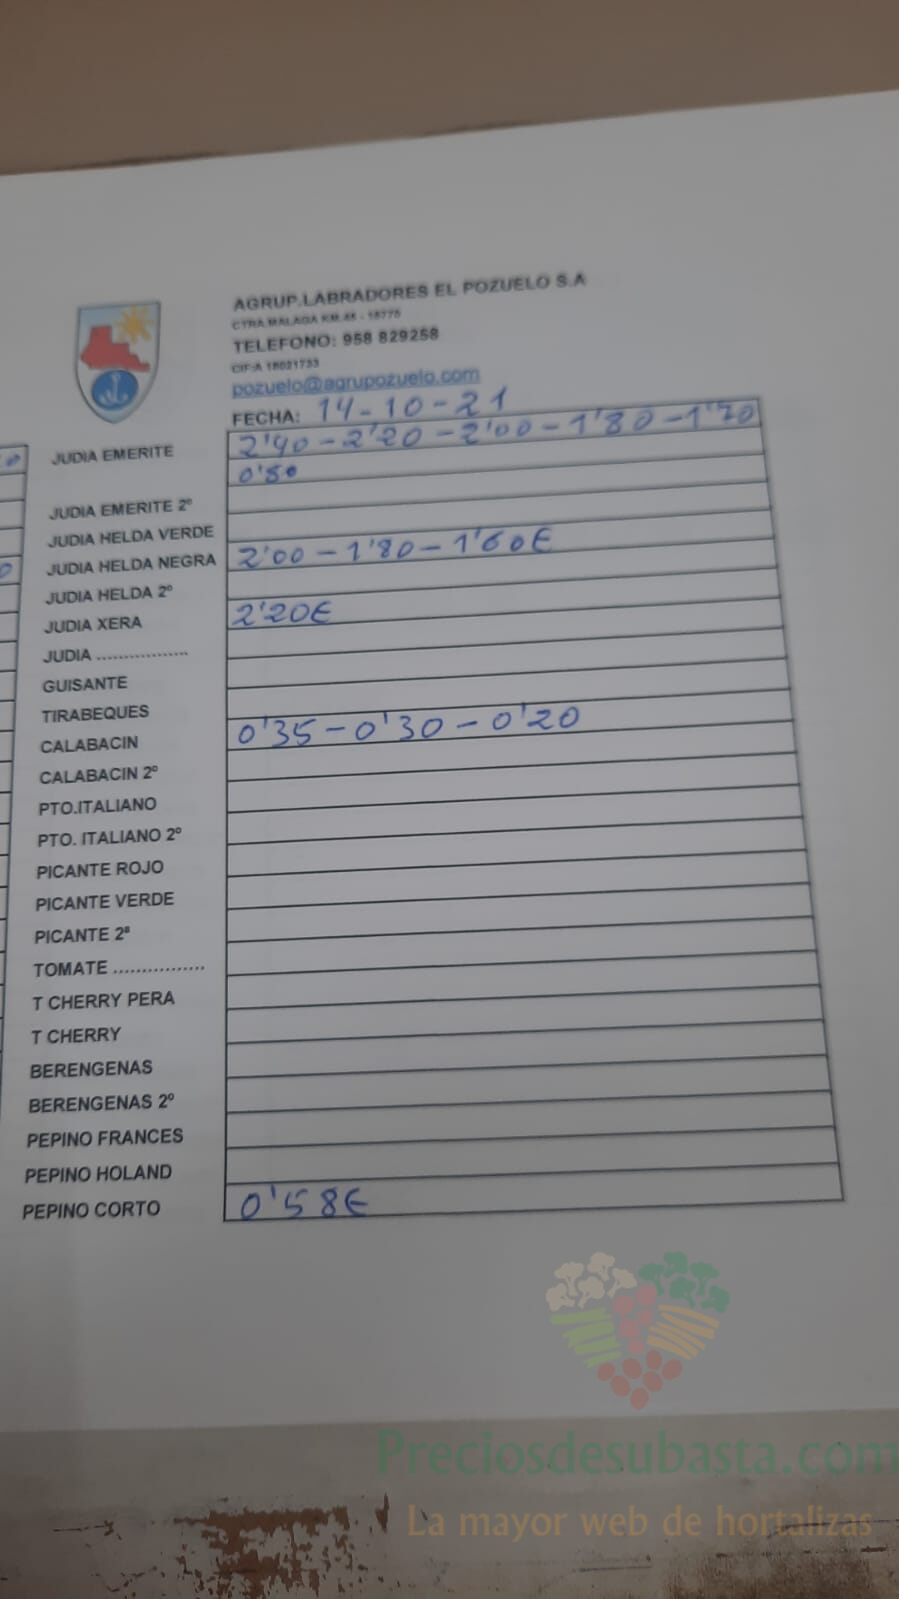 AGRUP.LABRADORES EL POZUELO S.A
CTRA.MALAGA KM.
TELEFONO: 958 829258
CIF:A 18021733
pozuelo@agrupozuelo.com
FECHA: 14-10-21
JUDIA EMERITE 2'40-2'20-2'00-1'80-1'70
0'80
JUDIA EMERITE 2º
JUDIA HELDA VERDE
JUDIA HELDA NEGRA 2'00-1'80-1'60€
JUDIA HELDA 2º
JUDIA XERA 2'20€
JUDIA .................
GUISANTE
TIRABEQUES
CALABACIN 0'35-0'30-0'20
CALABACIN 2º
PTO.ITALIANO
PTO. ITALIANO 2º
PICANTE ROJO
PICANTE VERDE
PICANTE 2ª
TOMATE ................
T CHERRY PERA
T CHERRY
BERENGENAS
BERENGENAS 2º
PEPINO FRANCES
PEPINO HOLAND
PEPINO CORTO 0'58€
Preciosdesubasta.com
La mayor web de hortalizas